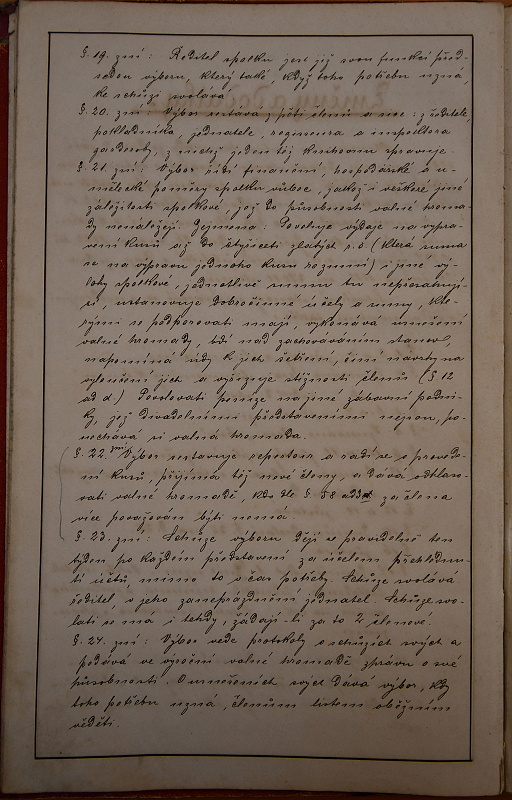 §. 19. zní: Ředitel spolku jest již svou funkcí před-
sedou výboru, který také, když toho potřebu uzná,
ke schůzi svolává.
§. 20. zní: Výbor sestává z pěti členů a sice: z ředitele,
pokladníka, jednatele, regisseura a inspektora
garderoby, z nichž jeden též knihovnu spravuje.
§. 21. zní: Výbor řídí finanční, hospodářské a u-
mělecké poměry spolku vůbec, jakož i veškeré jiné
záležitosti spolkové, jež do působnosti valné hroma-
dy nenáležejí. Jmenovitě: Povoluje výdaje na vypra-
vení kusů až do čtyřiceti zlatých r. č. (která suma
se na výpravu jednoho kusu rozumí) i jiné vý-
lohy spolkové, jednotlivě sumu tu nepřesahují-
cí, ustanovuje dobročinné účely a sumy, kte-
rými se podporovati mají, vykonává usnešení
valné hromady, bdí nad zachováváním stanov,
napomíná údy k jich šetření, činí návrhy na
vyloučení jich a vyřizuje stížnosti členů (§ 12
ad d.) Povolovati peníze na jiné zábavní podni-
ky, jež divadelními představeními nejsou, po-
nechává si valná hromada.
§. 22. zní: Výbor sestavuje repertoir a radí se o provede-
ní kusů, přijímá též nové členy, a dává odhlaso-
vati valné hromadě, kdo dle § 8 za člena
více považován býti nemá.
§. 23. zní: Schůze výboru dějí se pravidelně ten
týden po každém představení za účelem přehlédnu-
tí účtů, mimo to v čas potřeby. Schůze svolává
ředitel, v jeho zaneprázdnění jednatel. Schůze svo-
lati se má i tehdy, žádají-li za to 2 členové.
§. 24. zní: Výbor vede protokoly o schůzích svých a
podává ve výroční valné hromadě zprávu o své
působnosti. O usnešeních svých dává výbor, kdy
toho potřebu uzná, členům listem oběžním
věděti.